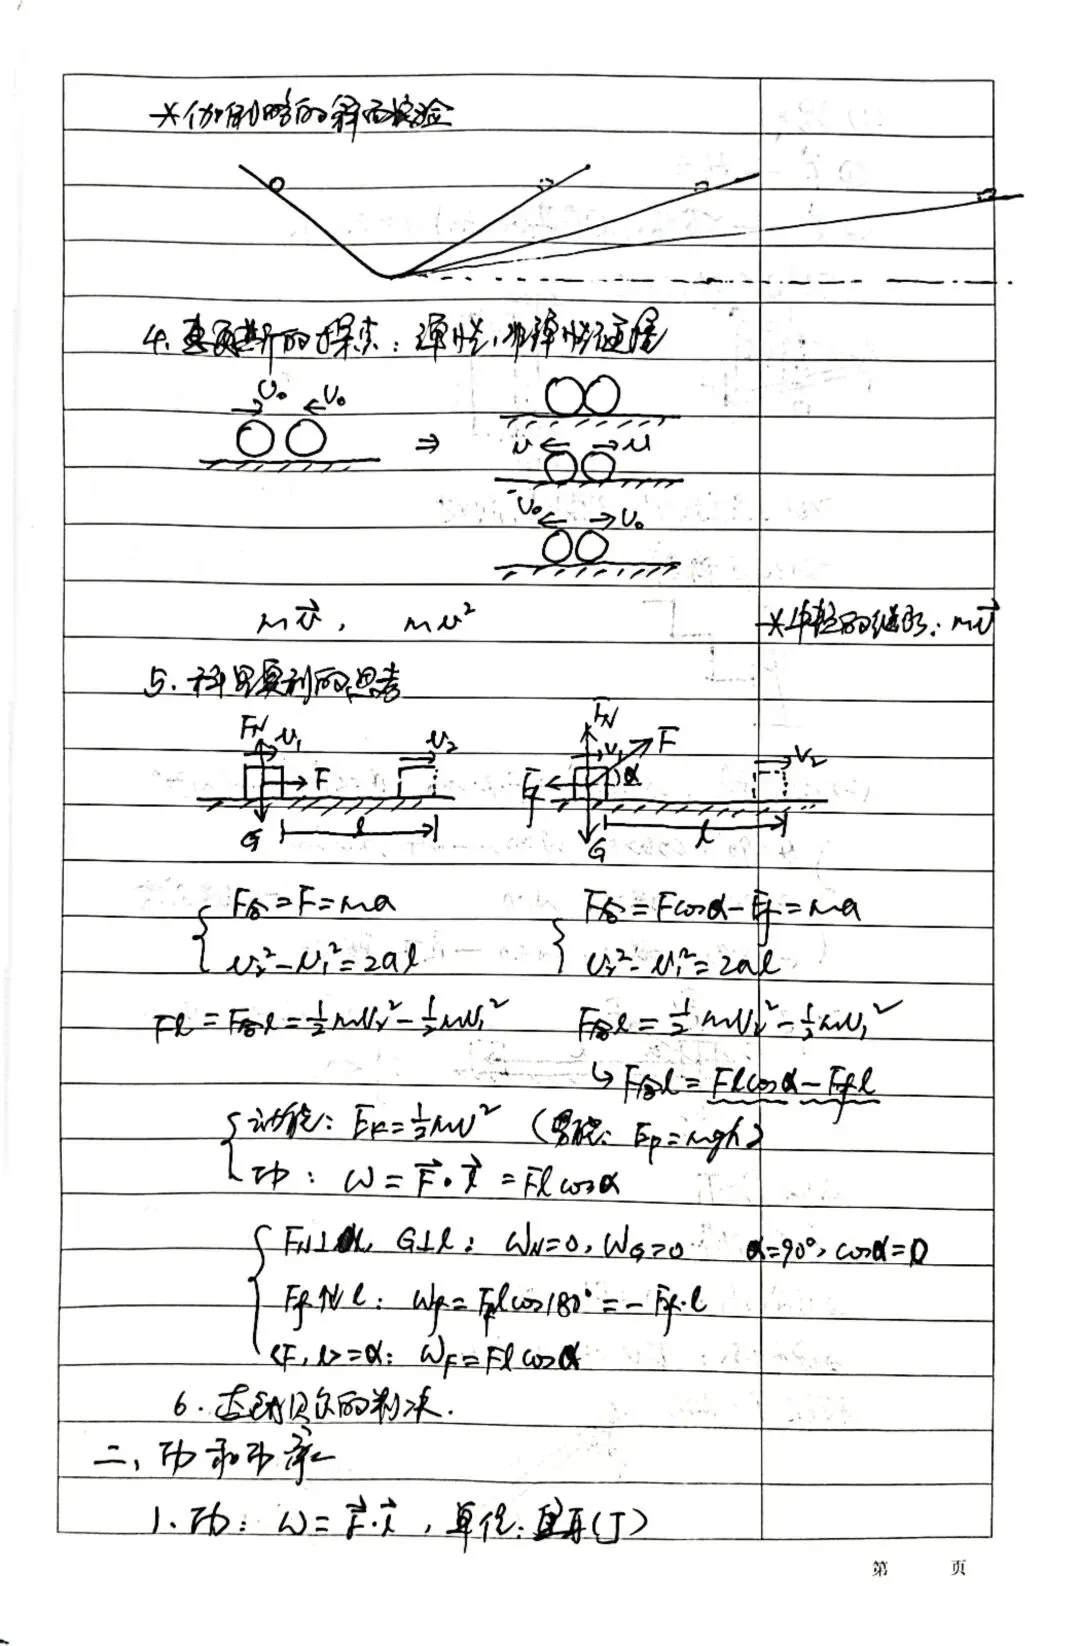 *伽利略的斜面实验
4. 惠更斯的探索：弹性，非弹性碰撞
v₀ v₀ ⇒
v v
v₀ v₀
mv⃗， mv²
*牛顿的继承：mv⃗
5. 科里奥利的思考
F_N v₁ F v₂ G l
F_N v₁ F α F_f v₂ G l
F合=F=ma
v₂²-v₁²=2al
F合=Fcosα-F_f=ma
v₂²-v₁²=2al
Fl=F合l=½mv₂²-½mv₁²
F合l=½mv₂²-½mv₁²
↳F合l=Flcosα-F_f l
动能：E_k=½mv² （势能：E_p=mgh）
功：W=F⃗·l⃗=Flcosα
F_N⊥l，G⊥l：W_N=0，W_G=0 α=90°，cosα=0
F_f⇅l：W_f=F_f l cos180°=-F_f·l
<F，l>=α：W_F=Flcosα
6. 达朗贝尔的判决.
二、功和功率
1. 功：W=F⃗·l⃗，单位：焦耳(J)
第 页